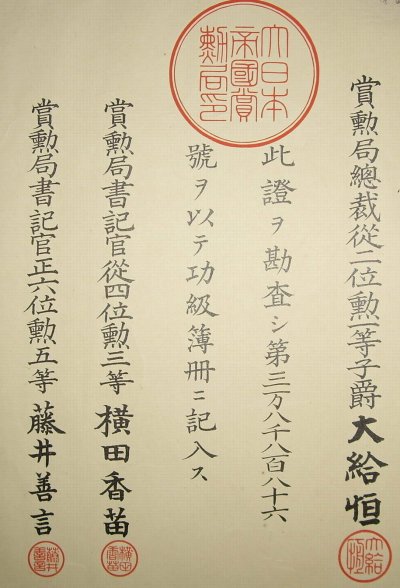 賞勲局總裁從二位勲一等子爵大給恒
此證ヲ勘査シ第三万八千八百八十六
號ヲ以テ功級簿册ニ記入ス
賞勲局書記官從四位勲三等横田香苗
賞勲局書記官正六位勲五等藤井善言
大日本
帝國賞
勲局印
大給恒